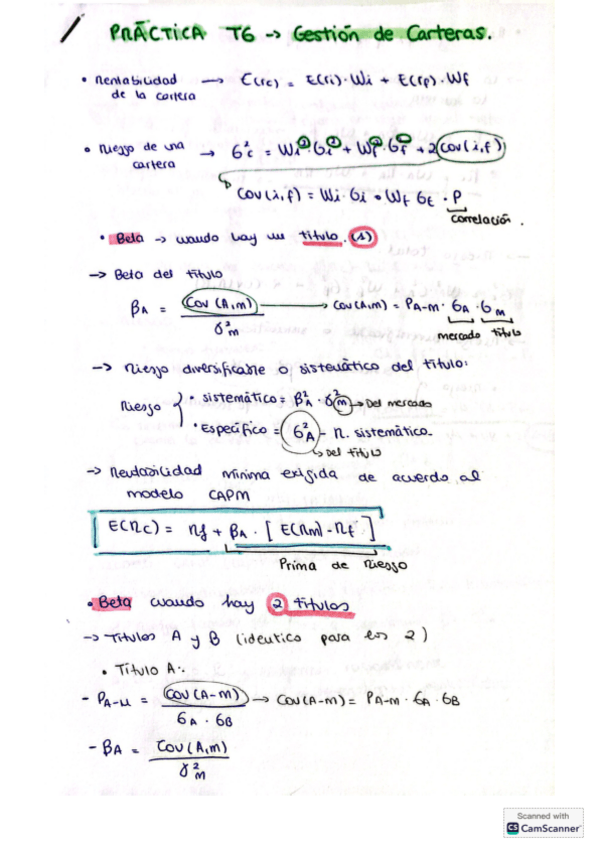 PRÁCTICA T6 -> Gestión de Carteras.
• Rentabilidad de la cartera -> E(rc) = E(ri)·Wi + E(rp)·Wf
• Riesgo de una cartera -> σ²c = Wi²·σi² + Wf²·σf² + 2 Cov(i,f)
Cov(i,f) = Wi·σi • Wf σf · P
correlación.
• Beta -> cuando hay un título. (1)
-> Beta del título
βA = Cov(A,m) / σ²m -> Cov(A,m) = PA-m · σA · σm
mercado título
-> Riesgo diversificable o sistemático del título:
Riesgo { • sistemático = β²A · σ²m -> Del mercado
• Específico = σ²A - R. sistemático.
↳ Del título
-> Rentabilidad mínima exigida de acuerdo al
modelo CAPM
[E(rc) = rf + βA · [E(rm) - rf]
Prima de Riesgo
• Beta cuando hay 2 títulos
-> Títulos A y B (identico para los 2)
• Título A:
- PA-M = Cov(A-m) / σA · σB -> Cov(A-m) = PA-m · σA · σB
- βA = Cov(A,m) / σ²m
Scanned with
CS CamScanner